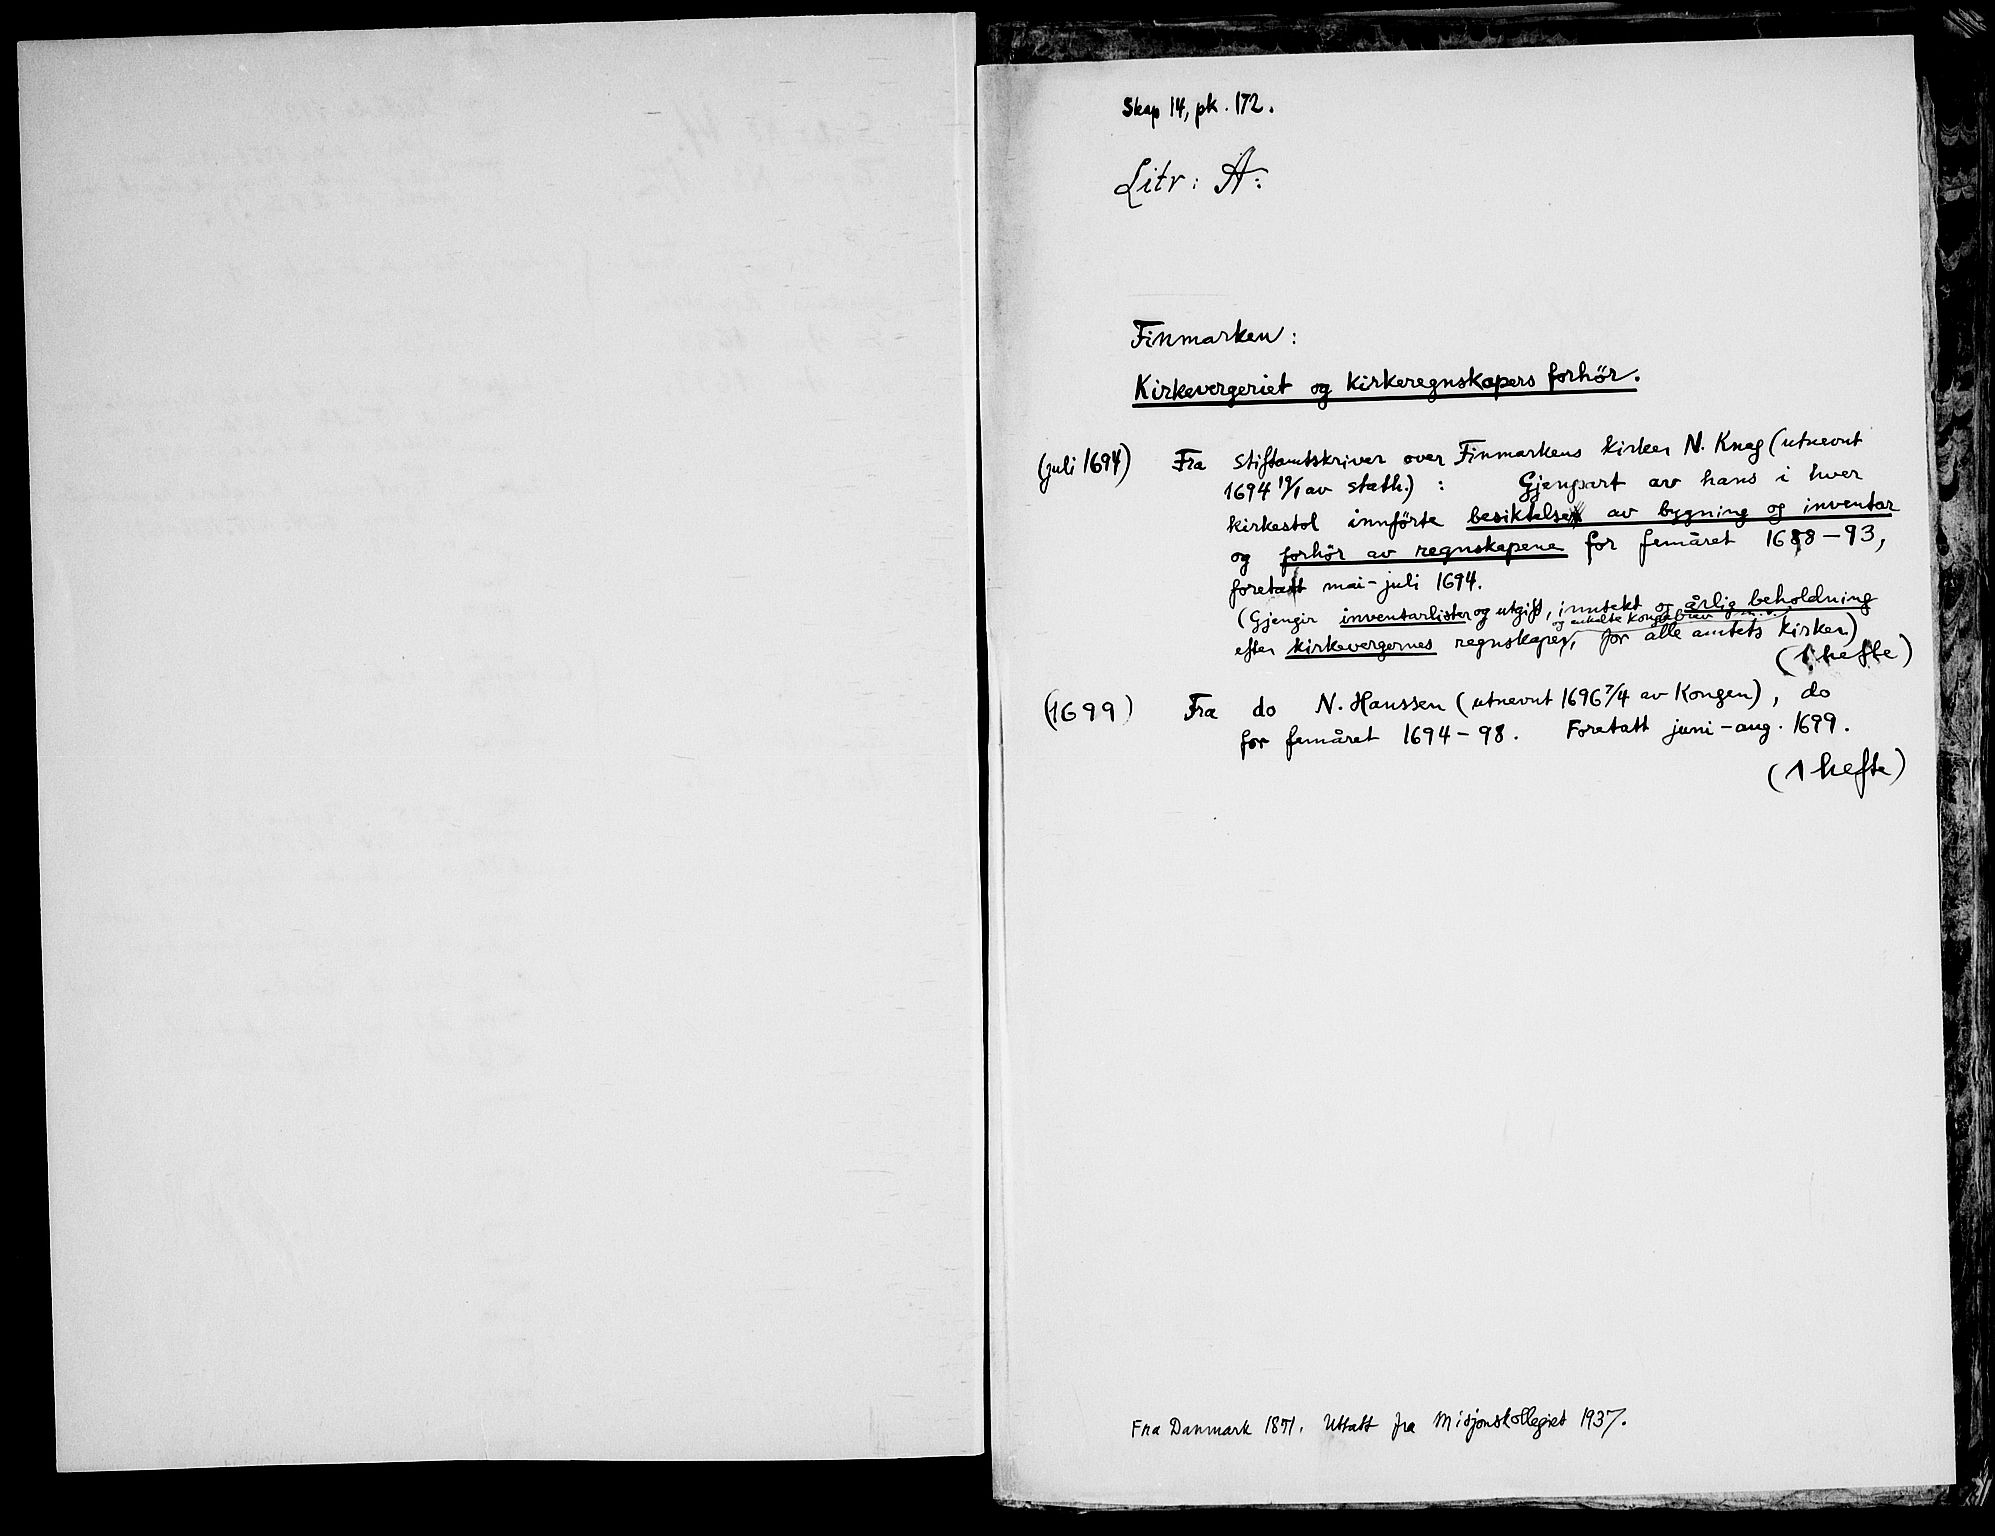 Skap 14, pk. 172.
Litr: A:
Finmarken:
Kirkevergeriet og kirkeregnskapers forhör.
(juli 1694) Fra Stiftamtskriver over Finmarkens kirker N. Knag (utnevnt
1694 19/1 av stath.) : Gjenpart av hans i hver
kirkestol innförte besiktelse av bygning og inventar
og forhör av regnskapene for femåret 1688-93,
foretatt mai-juli 1694.
(Gjengir inventarlister og utgift, inntekt og årlig beholdning
og enkelte kongebrev m.v.
efter kirkevergernes regnskaper, for alle amtets kirker)
(1 hefte)
(1699) Fra do N. Hanssen (utnevnt 1696 7/4 av Kongen), do
for femåret 1694-98. Foretatt juni-aug. 1699.
(1 hefte)
Fra Danmark 1851. Uttatt fra Misjonskollegiet 1937.